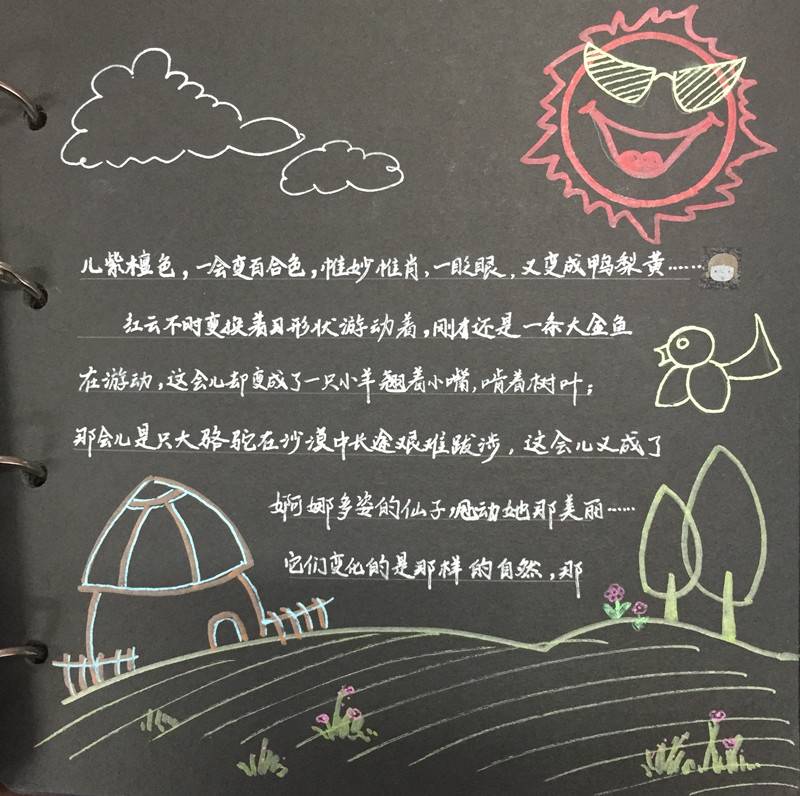 儿紫檀色，一会变百合色，惟妙惟肖，一眨眼，又变成鸭梨黄……
红云不时变换着形状游动着，刚才还是一条大金鱼
在游动，这会儿却变成了一只小羊翘着小嘴，啃着树叶；
那会儿是只大骆驼在沙漠中长途艰难跋涉，这会儿又成了
婀娜多姿的仙子，动她那美丽……
它们变化的是那样的自然，那